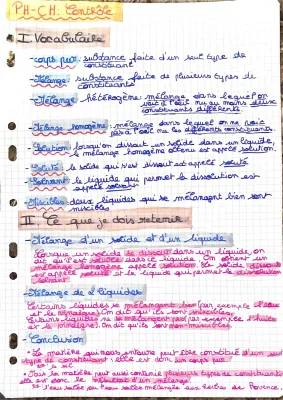 PH-CH. Contrôle
I Vocabulaire
- corps pur: substance faite d'un seul type de
constituant
- Mélange: substance faite de plusieurs types de
constituants
- Mélange hétérogène: mélange dans lequel on
voit à l'oeil nu au moins deux
constituants différents.
- Mélange homogène: mélange dans lequel on ne voit
pas à l'oeil nu les différents constituants.
- Solution: lorsqu'on dissout un solide dans un liquide,
le mélange homogène obtenu est appelé solution.
- Soluté: le solide qui s'est dissout est appelé soluté.
- Solvant: le liquide qui permet la dissolution est
appelé solvant
- Miscibles: deux liquides qui se mélangent bien sont
miscibles
II Ce que je dois retenir
- Mélange d'un solide et d'un liquide
Lorsque un solide se dissout dans un liquide, on
dit qu'il est soluble dans ce liquide. On obtient un
mélange homogène appelé solution. Le solide dissous
est appelé soluté et le liquide qui permet la dissolution
solvant
- Mélange de 2 liquides
Certains liquides se mélangent bien (par exemple l'eau
et le vinaigre). On dit qu'ils sont miscibles.
Certains liquides ne se mélangent pas (par exemple l'huile
et le vinaigre). On dit qu'ils sont non-miscibles.
- Conclusion
• La matière qui nous entoure peut être constituée d'un seul
type de constituant elle est donc un corps pur.
• Mais la matière peut aussi contenir plusieurs types de constituants
elle est donc le résultat d'un mélange.